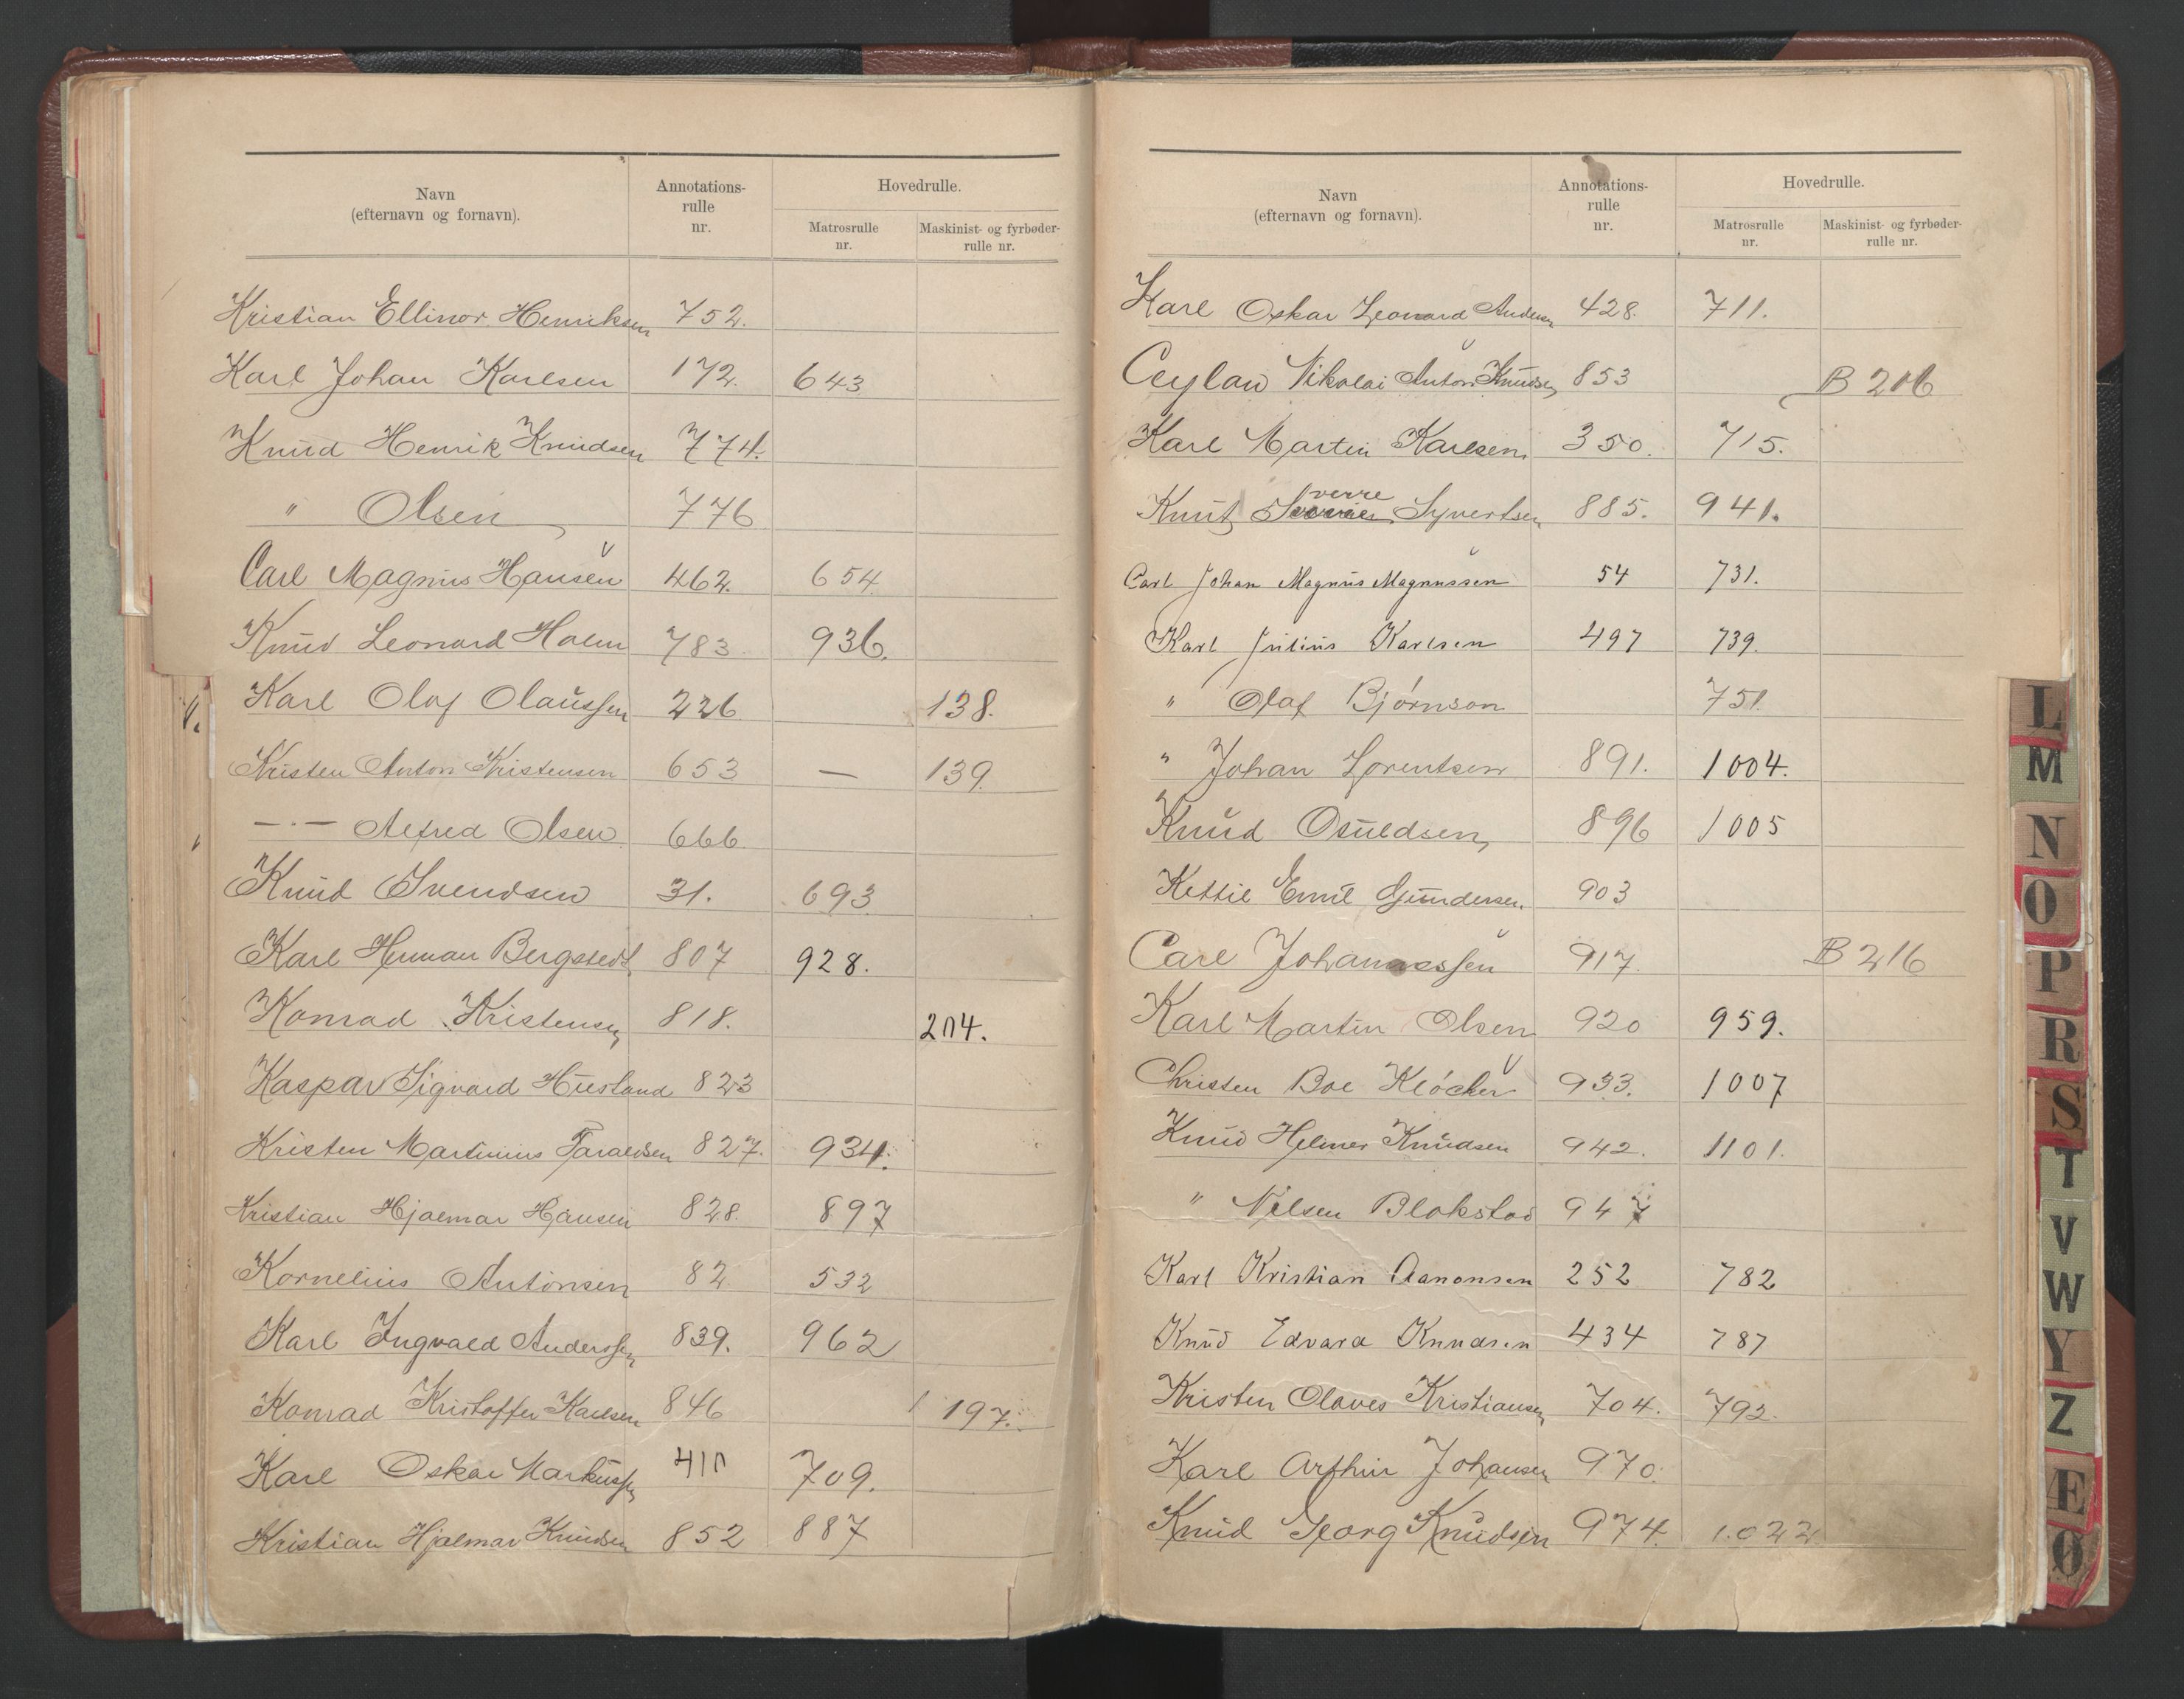 Navn
(efternavn og fornavn).
Annotations-
rulle
nr.
Hovedrulle.
Matrosrulle
nr.
Maskinist- og fyrbøder-
rulle nr.
Kristian Ellinor Henriksen 752.
Karl Johan Karlsen 172. 643
Knud Henrik Knudsen 774.
" Olsen 776
Carl Magnus Hansen 462. 654.
Knud Leonard Holm 783. 936.
Karl Olaf Olaussen 226 138.
Kristen Anton Kristensen 653 — 139.
—·— Alfred Olsen 666
Knud Svendsen 31. 693
Karl Herman Bergstedt 807 928.
Konrad Kristensen 818. 204.
Kaspar Sigvard Husland 823
Kristen Martinius Taraldsen 827. 934.
Kristian Hjalmar Hansen 828. 897
Kornelius Antonsen 82. 532
Karl Ingvald Anderssen 839. 962
Konrad Kristoffer Karlsen 846 197.
Karl Oskar Markussen 410 709.
Kristian Hjalmar Knudsen 852 887
Navn
(efternavn og fornavn).
Annotations-
rulle
nr.
Hovedrulle.
Matrosrulle
nr.
Maskinist- og fyrbøder-
rulle nr.
Karl Oskar Leonard Andersen 428. 711.
Ceylan Nikolai Anton Knudsen 853 B 206
Karl Martin Karlsen 350. 715.
verre
Knut Syvertsen 885. 941.
Carl Johan Magnus Magnussen 54 731.
Karl Julius Karlsen 497 739.
" Olaf Bjørnson 751.
" Johan Lorentsen 891. 1004.
Knud Osuldsen 896 1005
Kettil Emil Gundersen. 903
Carl Johannessen 917. B 216
Karl Martin Olsen 920 959.
Christen Boe Klöcker 933. 1007
Knud Helmer Knudsen 942. 1101.
" Nilsen Blakstad 947
Karl Kristian Aanonsen 252 782
Knud Edvard Knudsen 434 787
Kristen Olaves Kristiansen 704. 792.
Karl Arthur Johansen 970.
Knud Georg Knudsen 974. 1.022
L
M
N
O
P
R
S
T
V
W
Y
Z
Æ
Ø